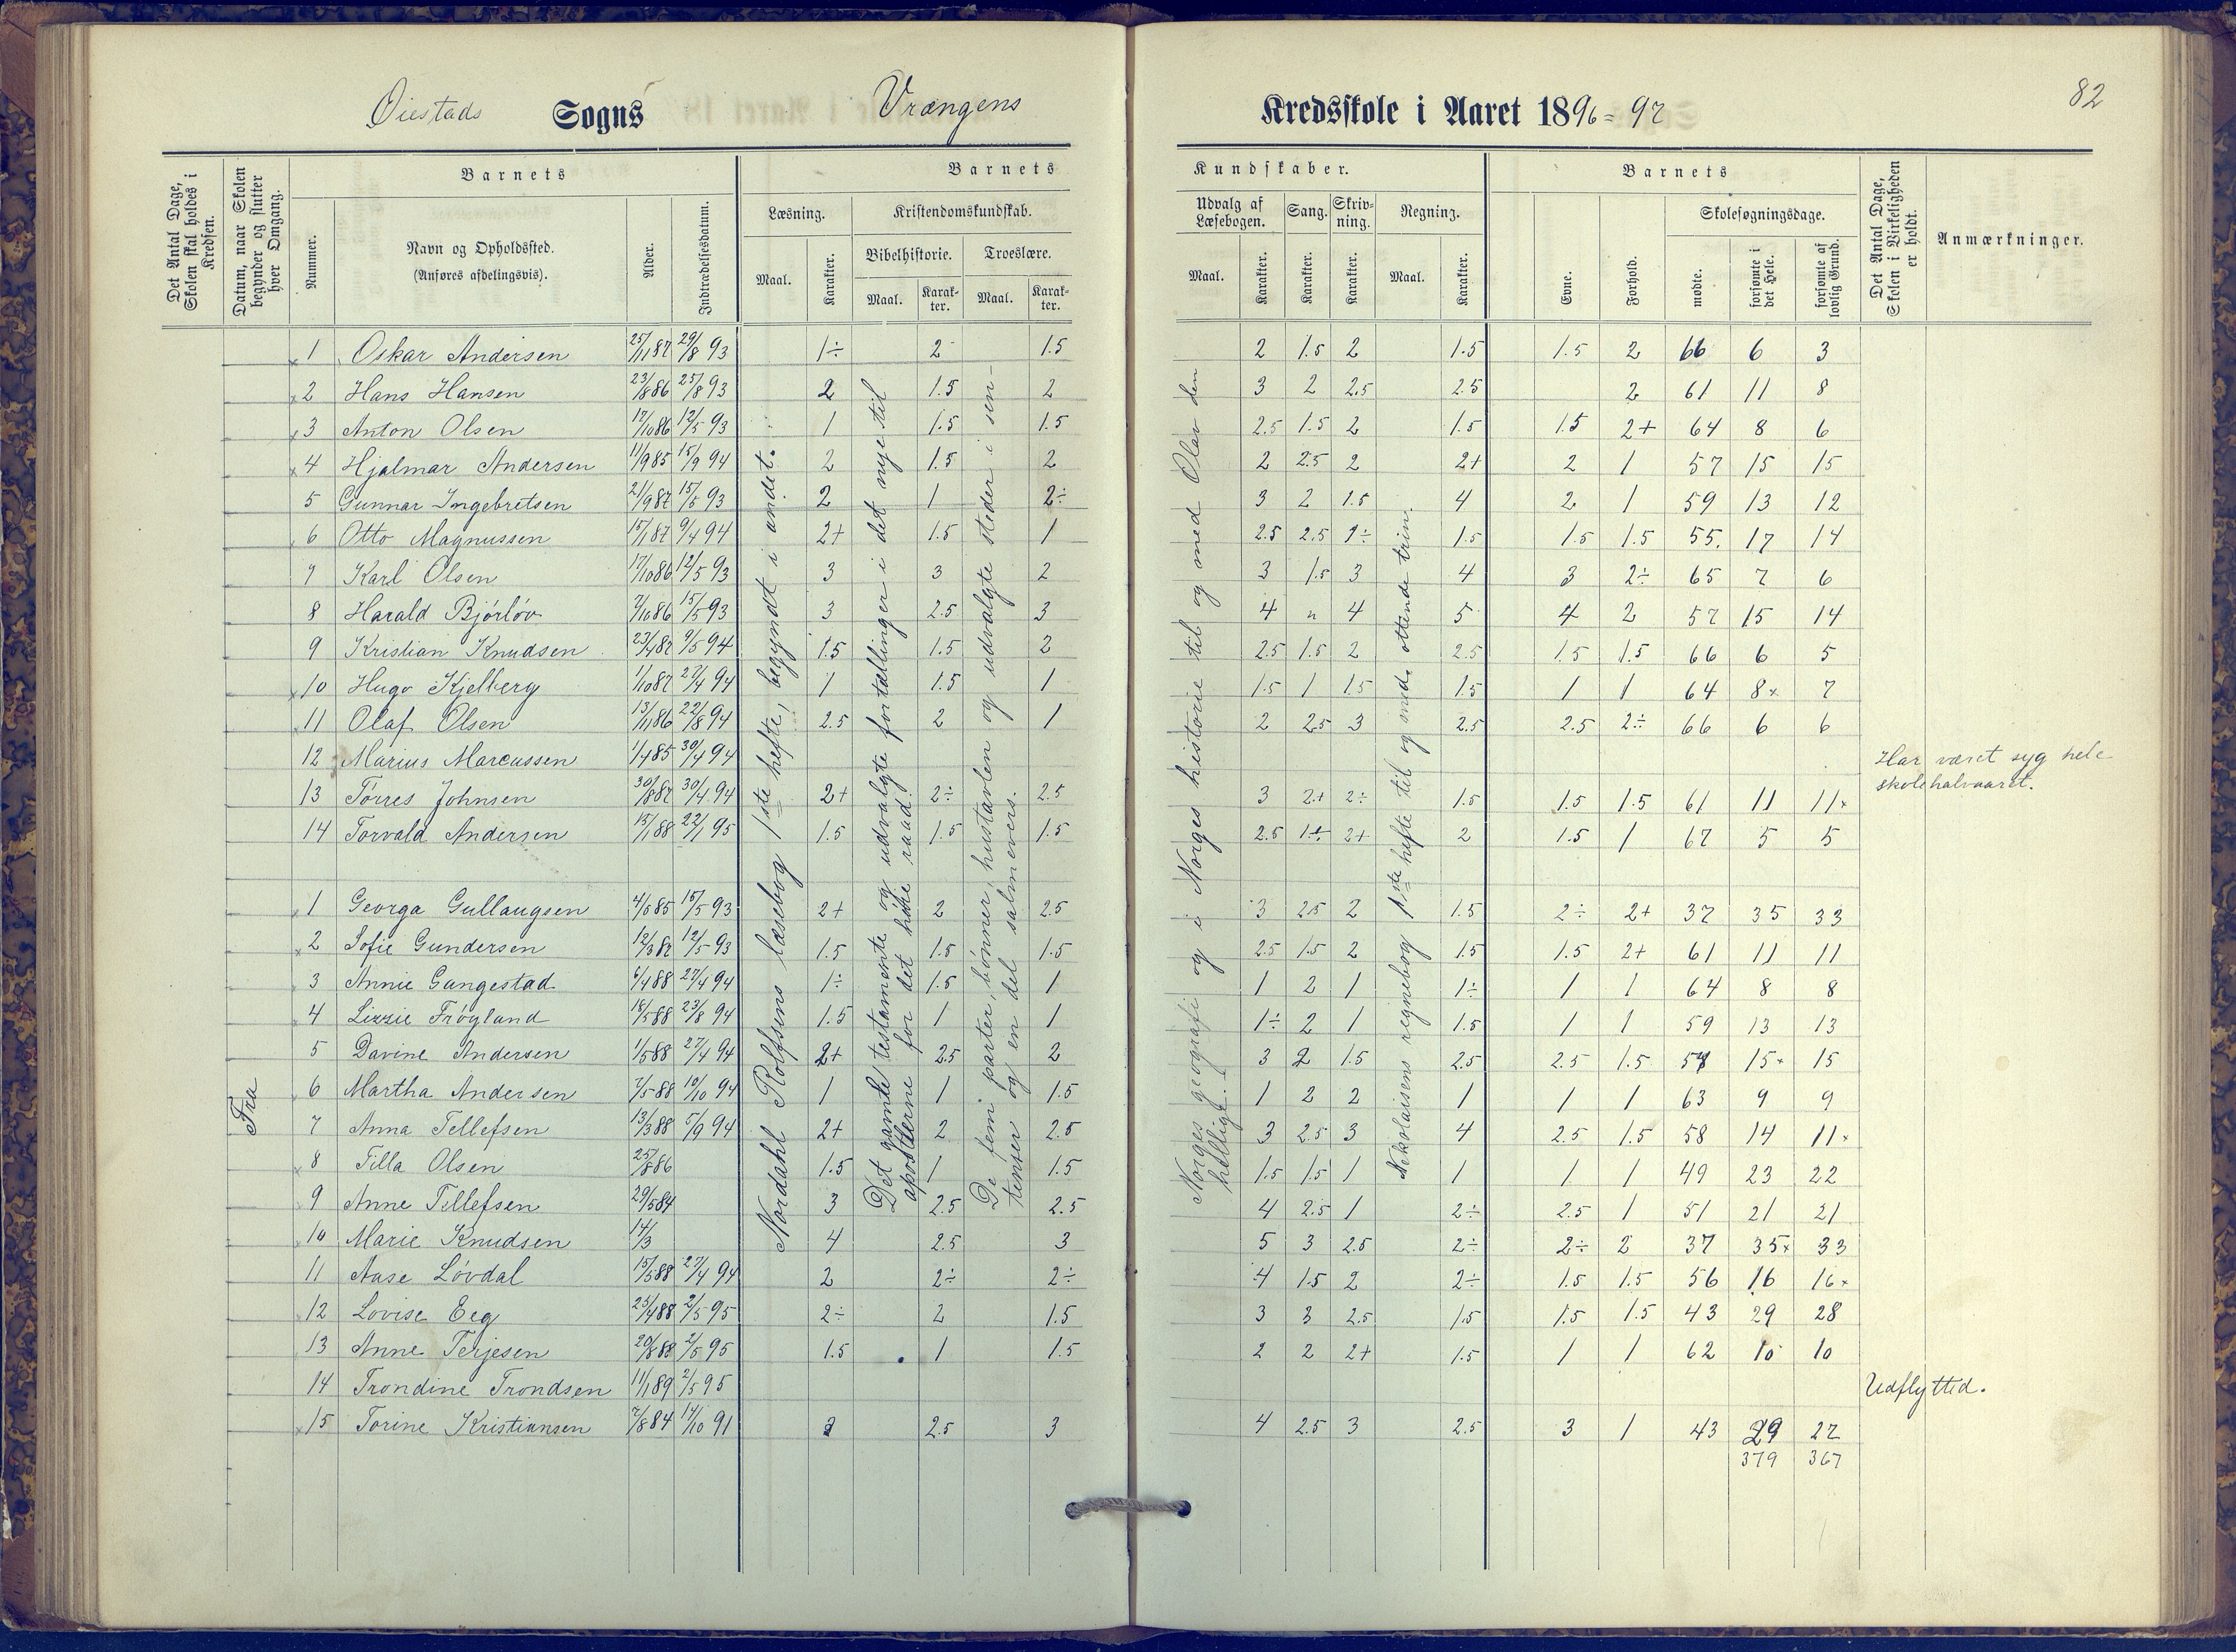 82
Øiestads Sogns Vrængens Kredsskole i Aaret 1896=97
Det Antal Dage, Skolen skal holdes i Kredsen.
Datum, naar Skolen begynder og slutter hver Omgang.
Barnets
Nummer.
Navn og Opholdssted.
(Anføres afdelingsvis).
Alder.
Indtrædelsesdatum.
Barnets
Læsning.
Maal.
Karakter.
Kristendomskundskab.
Bibelhistorie.
Maal.
Karakter.
Troeslære.
Maal.
Karakter.
Kundskaber.
Udvalg af Læsebogen.
Maal.
Karakter.
Sang.
Karakter.
Skrivning.
Karakter.
Regning.
Maal.
Karakter.
Barnets
Evne.
Forhold.
Skolesøgningsdage.
mødte.
forsømte i det Hele.
forsømte af lovlig Grund.
Det Antal Dage, Skolen i Virkeligheden er holdt.
Anmærkninger.
1 Oskar Andersen 25/11 87 29/8 93 1÷ 2 1.5 2 1.5 2 1.5 1.5 2 66 6 3
2 Hans Hansen 23/8 86 25/8 93 2 1.5 2 3 2 2.5 2.5 2 61 11 8
3 Anton Olsen 17/10 86 12/5 93 1 1.5 1.5 2.5 1.5 2 1.5 1.5 2+ 64 8 6
4 Hjalmar Andersen 11/9 85 15/9 94 2 1.5 2 2 2.5 2 2+ 2 1 57 15 15
5 Gunnar Ingebretsen 21/9 87 15/5 93 2 1 2÷ 3 2 1.5 4 2 1 59 13 12
6 Otto Magnussen 15/1 87 9/4 94 2+ 1.5 1 2.5 2.5 1.5 1.5 1.5 55. 17 14
7 Karl Olsen 17/10 86 12/5 93 3 3 2 3 1.5 3 4 3 2÷ 65 7 6
8 Harald Bjørløv 7/10 86 15/5 93 3 2.5 3 4 " 4 5 4 2 57 15 14
9 Kristian Knudsen 23/4 87 9/5 94 1.5 1.5 2 2.5 1.5 2 2.5 1.5 1.5 66 6 5
10 Hugo Kjelberg 1/10 87 27/4 94 1 1.5 1 1.5 1 1.5 1.5 1 1 64 8× 7
11 Olaf Olsen 13/11 86 22/8 94 2.5 2 1 2 2.5 3 2.5 2.5 2÷ 66 6 6
12 Marius Marcussen 1/4 85 30/4 94 Har været syg hele
skolehalvaaret.
13 Tørres Johnsen 30/8 87 30/4 94 2+ 2÷ 2.5 3 2+ 2÷ 1.5 1.5 1.5 61 11 11×
14 Torvald Andersen 15/1 88 22/1 95 1.5 1.5 1.5 2.5 1÷ 2+ 2 1.5 1 67 5 5
1 Georga Gullaugsen 4/5 85 15/5 93 2+ 2 2.5 3 2.5 2 1.5 2÷ 2+ 37 35 33
2 Sofie Gundersen 12/3 87 12/5 93 1.5 1.5 1.5 2.5 1.5 2 1.5 1.5 2+ 61 11 11
3 Annie Gangestad 6/4 88 27/4 94 1÷ 1.5 1 1 2 1 1÷ 1 1 64 8 8
4 Lizzie Frøyland 18/5 88 23/8 94 1.5 1 1 1÷ 2 1 1.5 1 1 59 13 13
5 Davine Andersen 1/5 88 27/4 94 2+ 2.5 2 3 2 1.5 2.5 2.5 1.5 57 15× 15
Fra
6 Martha Andersen 7/5 88 10/10 94 1 1 1.5 1 2 2 1 1 1 63 9 9
7 Anna Tellefsen 13/3 88 5/9 94 2+ 2 2.5 3 2.5 3 4 2.5 1.5 58 14 11×
8 Tilla Olsen 25/8 86 1.5 1 1.5 1.5 1.5 1 1 1 1 49 23 22
9 Anne Tellefsen 29/5 84 3 2.5 2.5 4 2.5 1 2÷ 2.5 1 51 21 21
10 Marie Knudsen 14/3 4 2.5 3 5 3 2.5 2÷ 2÷ 2 37 35× 33
11 Aase Løvdal 15/5 88 27/4 94 2 2÷ 2÷ 4 1.5 2 2÷ 1.5 1.5 56 16 16×
12 Lovise Eeg 25/4 88 2/5 95 2÷ 2 1.5 3 3 2.5 1.5 1.5 1.5 43 29 28
13 Anne Terjesen 20/8 88 2/5 95 1.5 1 1.5 2 2 2+ 1.5 1 1 62 10 10
14 Trondine Trondsen 11/1 89 2/5 95 Udflytted.
15 Torine Kristiansen 7/8 84 14/10 91 3 2.5 3 4 2.5 3 2.5 3 1 43 29 27
379 367
Nordahl Rolfsens læsebog 1ste hefte, begyndt i andet.
Det gamle testamente og udvalgte fortællinger i det nye til
apostlerne for det høie raad.
De fem parter, bønner, hustavlen og udvalgte steder i sen-
tenser og en del salmevers.
Norges geografi og i Norges historie til og med Olav den
hellige.
Nikolaisens regnebog 1ste hefte til og med ottende trin.